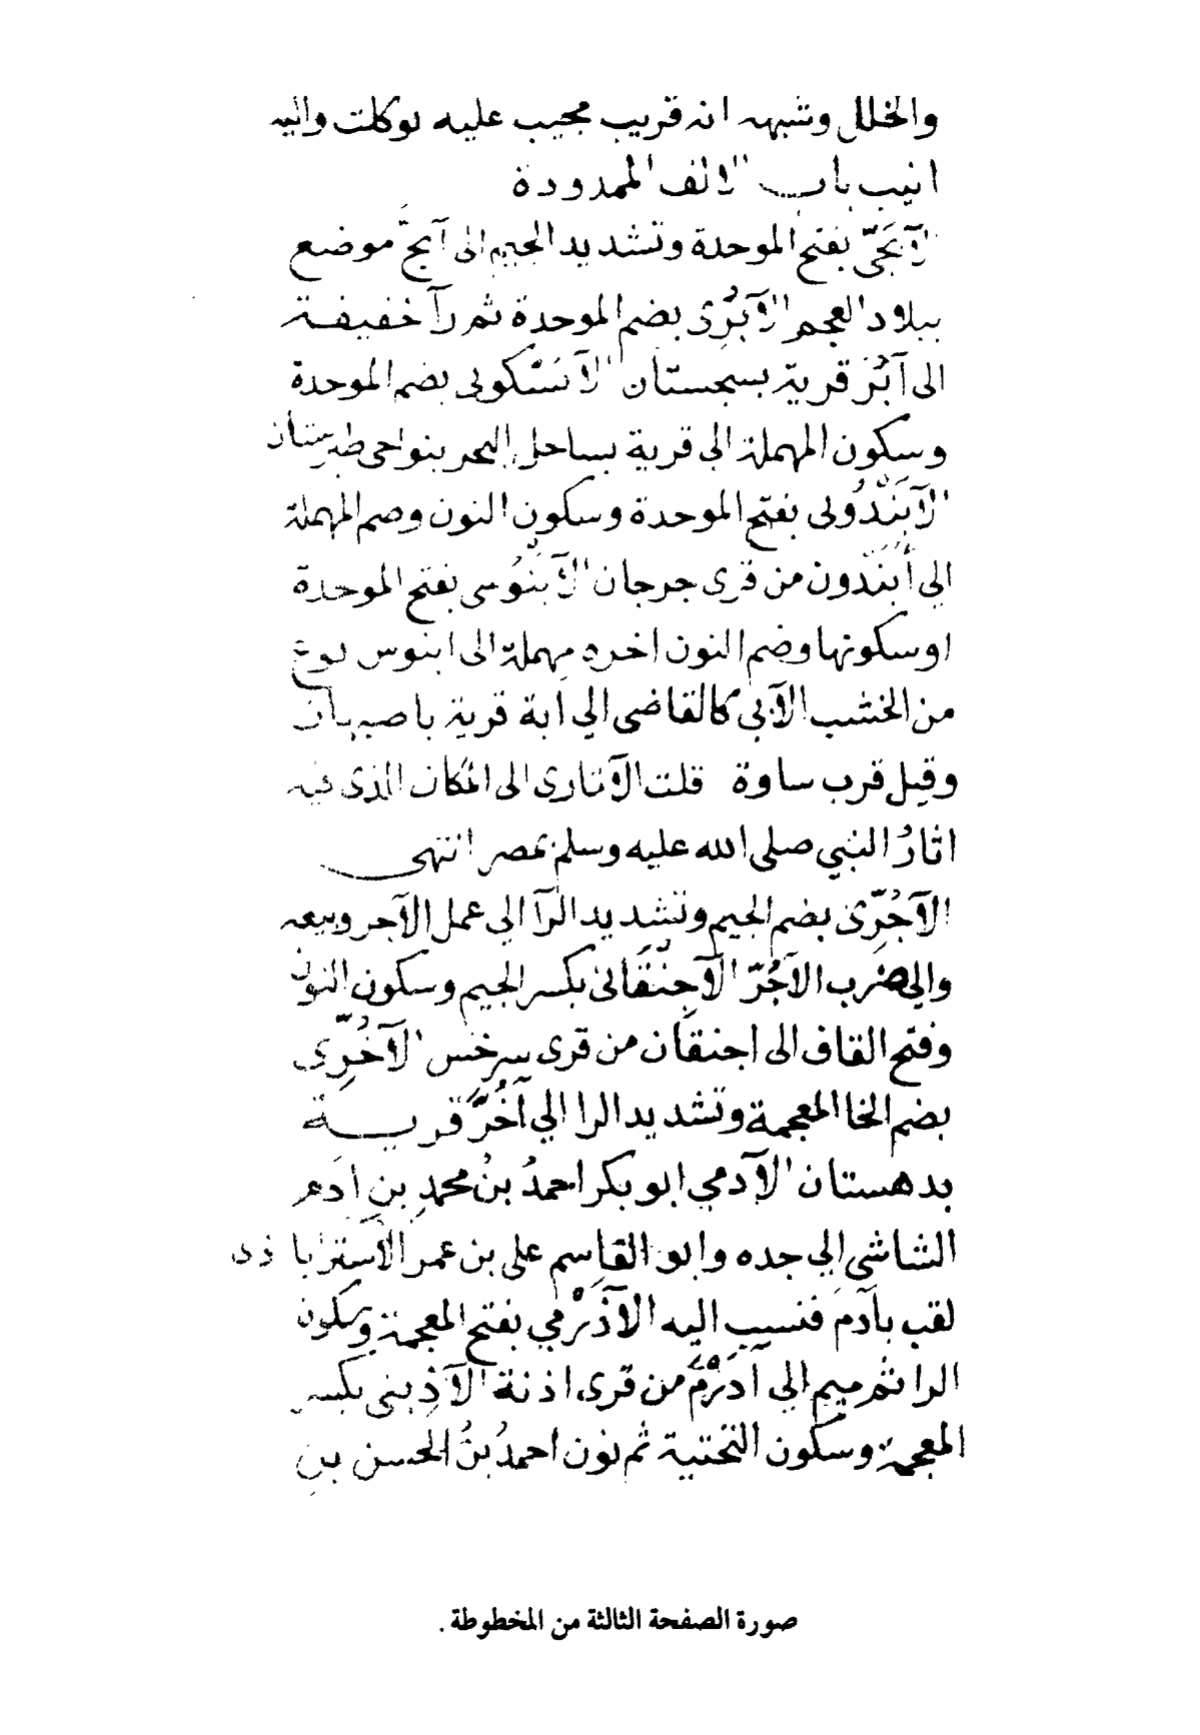 والخلل وشبهه انه قريب مجيب عليه توكلت واليه
انيب باب الالف الممدودة
الآبَجّي بفتح الموحدة وتشديد الجيم الى آبجّ موضع
ببلاد العجم الآبُرِى بضم الموحدة ثم رآ خفيفة
الى آبُرَ قرية بسجستان الآبسْكونى بضم الموحدة
وسكون المهملة الى قرية بساحل البحر بنواحى طبرستان
الآبَنْدُونى بفتح الموحدة وسكون النون وضم المهملة
الي أبَنْدون من قرى جرجان الآبنُوسى بفتح الموحدة
او سكونها وضم النون اخره مهملة الى ابنوس نوع
من الخشب الآبي كالقاضى الي آبة قرية باصبهان
وقيل قرب ساوة قلت الآثارى الى المكان الذى فيه
اثارُ النبي صلى الله عليه وسلم بمصر انتهى
الآجُرِّى بضم الجيم وتشديد الرآ الي عمل الآجر وبيعه
والي ضرب الآجُرّ الآجِنْقَانى بكسر الجيم وسكون النون
وفتح القاف الى اجنقان من قرى سرخس الآخُرِّى
بضم الخا المعجمة وتشديد الرا الي آخُرَّ قرية
بدهستان الآدمي ابو بكر احمدُ بنُ محمدِ بنِ ادم
الشاشي الي جده وابو القاسم على بن عمر الاستراباذى
لقب بآدمَ فنسب اليه الآذَرْمي بفتح المعجمة وسكون
الرا ثم ميم الي آذَرْمَ من قرى اذنة الآذِينى بكسر
المعجمة وسكون التحتية ثم نون احمدُ بنُ الحسن بن
صورة الصفحة الثالثة من المخطوطة .